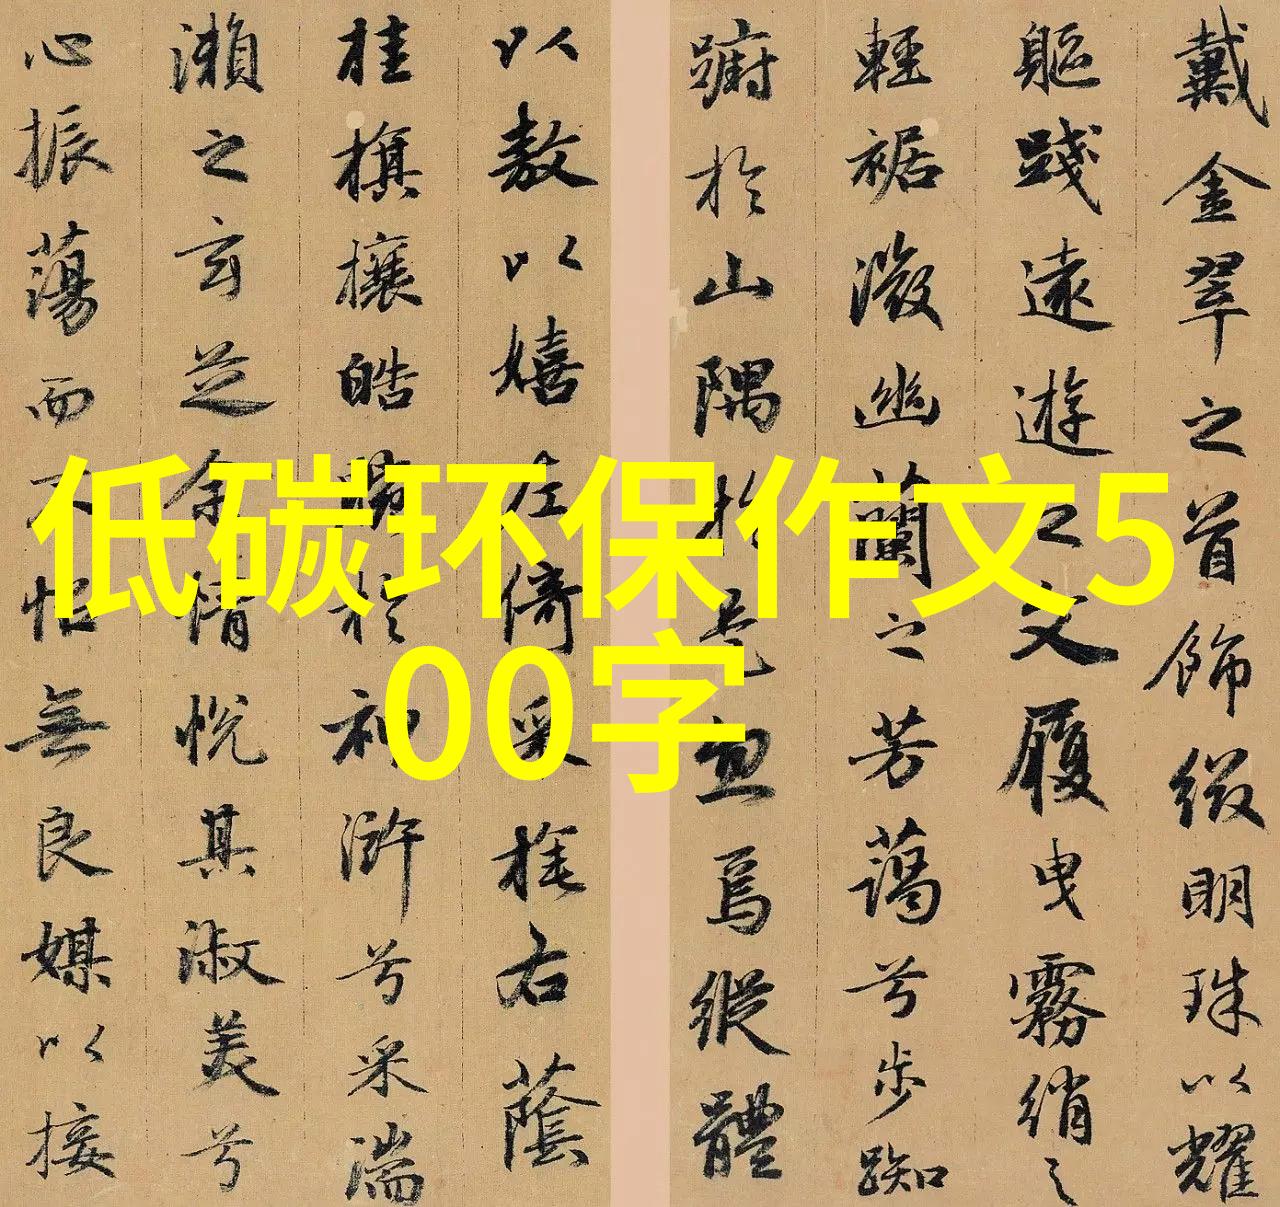 低碳环保作文5
00字
戴金翠之首飾綴明珠以耀
軀踐遠遊之文履曳霧綃之
輕裾微幽蘭之芳藹兮步踟
躕於山隅於是忽焉縱體
以敖以嬉左倚采旄右蔭
桂旗攘皓腕於神滸兮采湍
瀨之玄芝余情悅其淑美兮
心振蕩而不怡無良媒以接